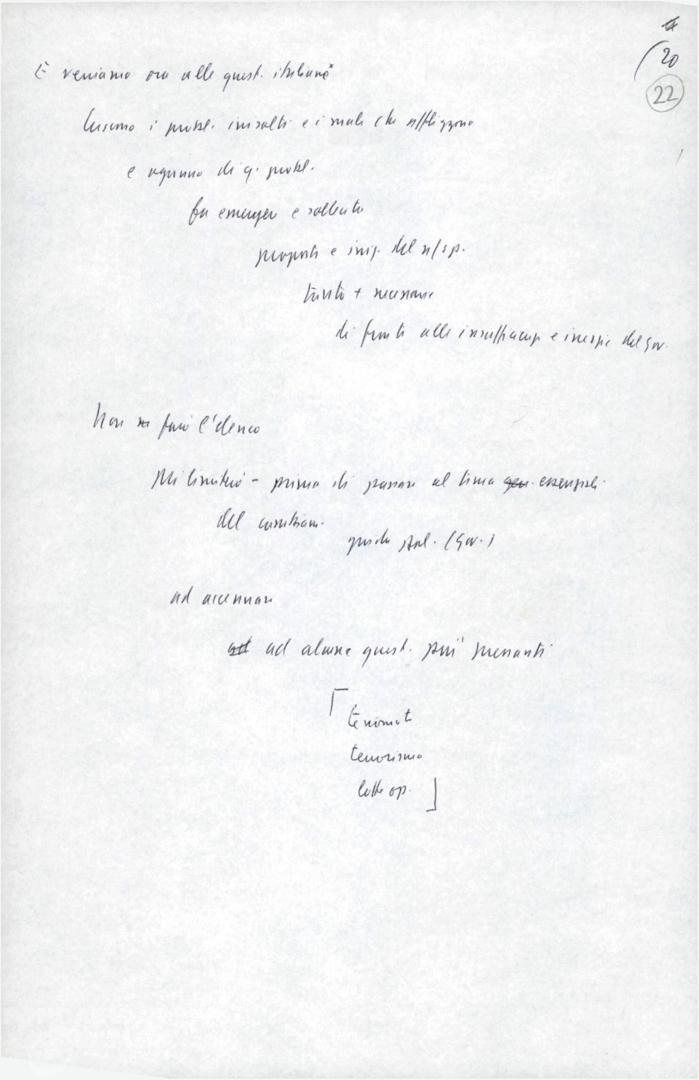 20
22
E veniamo ora alle quest. italiane
i probl. insoluti e i mali che affliggono
e ognuno di q. probl.
fa emergere e sollecita
proposte e iniz. del n/ p.
tanto + necessarie
di fronte alle insufficienze e inerzie del Gov.
Non farò l'elenco
Mi limiterò - prima di passare al tema essenziale
del
guida pol. (Gov.)
ad accennare
ad alcune quest. più pressanti
terremoto
terrorismo
lotte op.